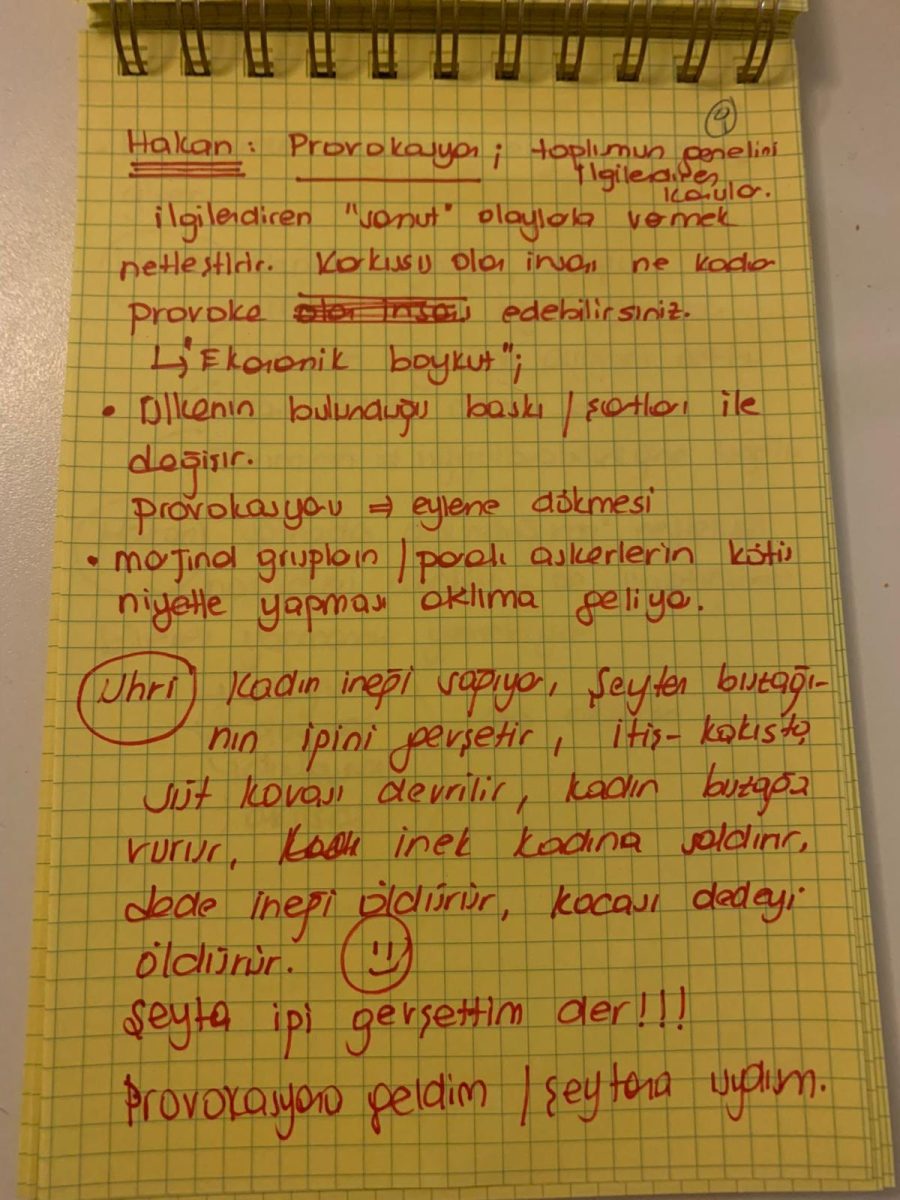 9
Hakan: Provokasyon; toplumun genelini
ilgilendiren
konular.
ilgilendiren "somut" olaylarla vermek
netleştirir. Korkusu olan insanı ne kadar
provoke olan insanı edebilirsiniz.
↳ "Ekonomik boykut";
• Ülkenin bulunduğu baskı / şartları ile
değişir.
provokasyonu ⇒ eyleme dökmesi
• marjinal grupların / paralı askerlerin kötü
niyetle yapması aklıma geliyor.
Uhri Kadın ineği sağıyor, şeytan buzağı-
nın ipini gevşetir, itiş-kakışta
süt kovası devrilir, kadın buzağıya
vurur, inek kadına saldırır,
dede ineği öldürür, kocası dedeyi
öldürür.
Şeyta ipi gevşettim der!!!
Provokasyona geldim / şeytana uydum.